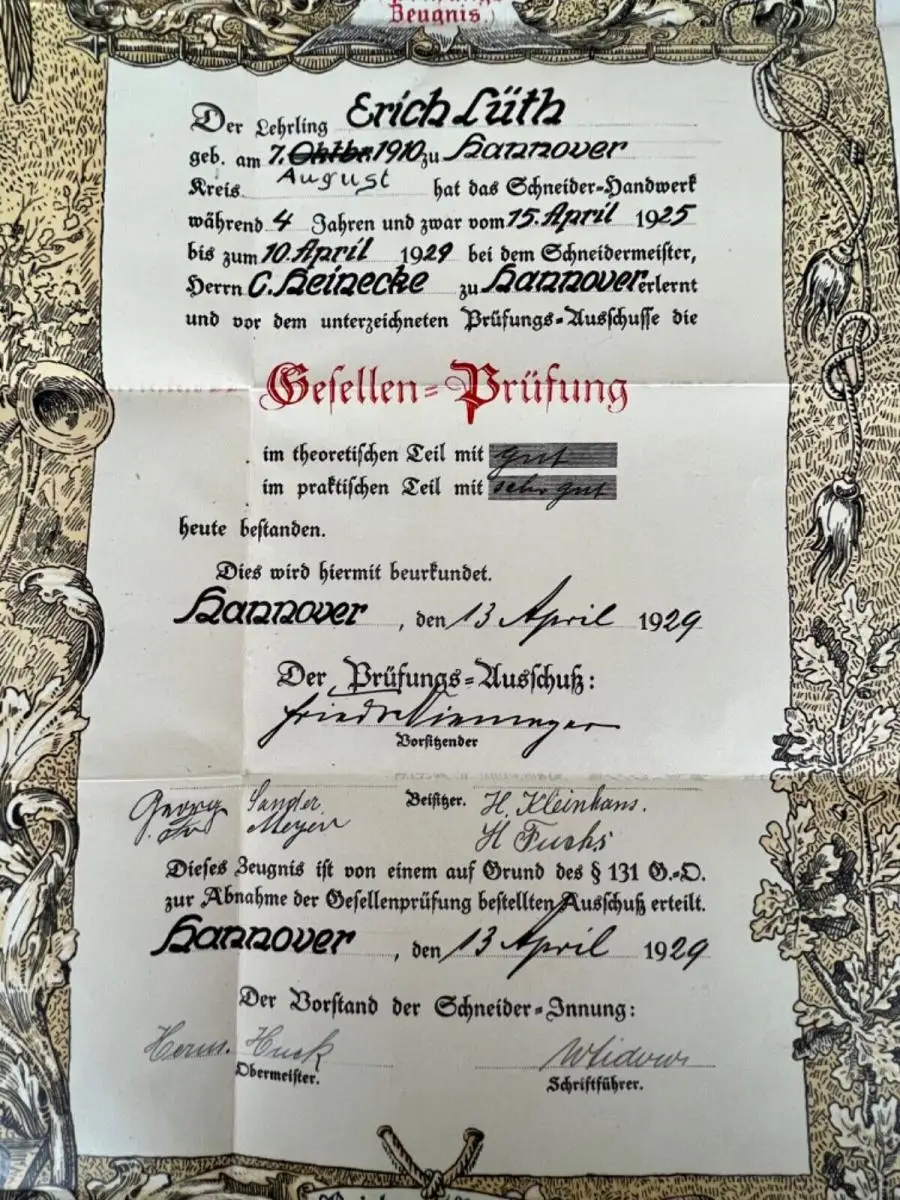 Prüfungs-
Zeugnis
Der Lehrling Erich Lüth
geb. am 7. Oktbr. 1910 zu Hannover
August
Kreis hat das Schneider-Handwerk
während 4 Jahren und zwar vom 15. April 1925
bis zum 10. April 1929 bei dem Schneidermeister,
Herrn C. Heinecke zu Hannover erlernt
und vor dem unterzeichneten Prüfungs-Ausschusse die
Gesellen-Prüfung
im theoretischen Teil mit gut
im praktischen Teil mit sehr gut
heute bestanden.
Dies wird hiermit beurkundet.
Hannover, den 13 April 1929
Der Prüfungs-Ausschuß:
Friedr. Niemeyer
Vorsitzender
Georg Sander Beisitzer. H. Kleinhans.
Fr Meyer H Fuchs
Dieses Zeugnis ist von einem auf Grund des § 131 G.-O.
zur Abnahme der Gesellenprüfung bestellten Ausschuß erteilt.
Hannover, den 13 April 1929
Der Vorstand der Schneider-Innung:
Herm. Huck
Obermeister. Schriftführer.